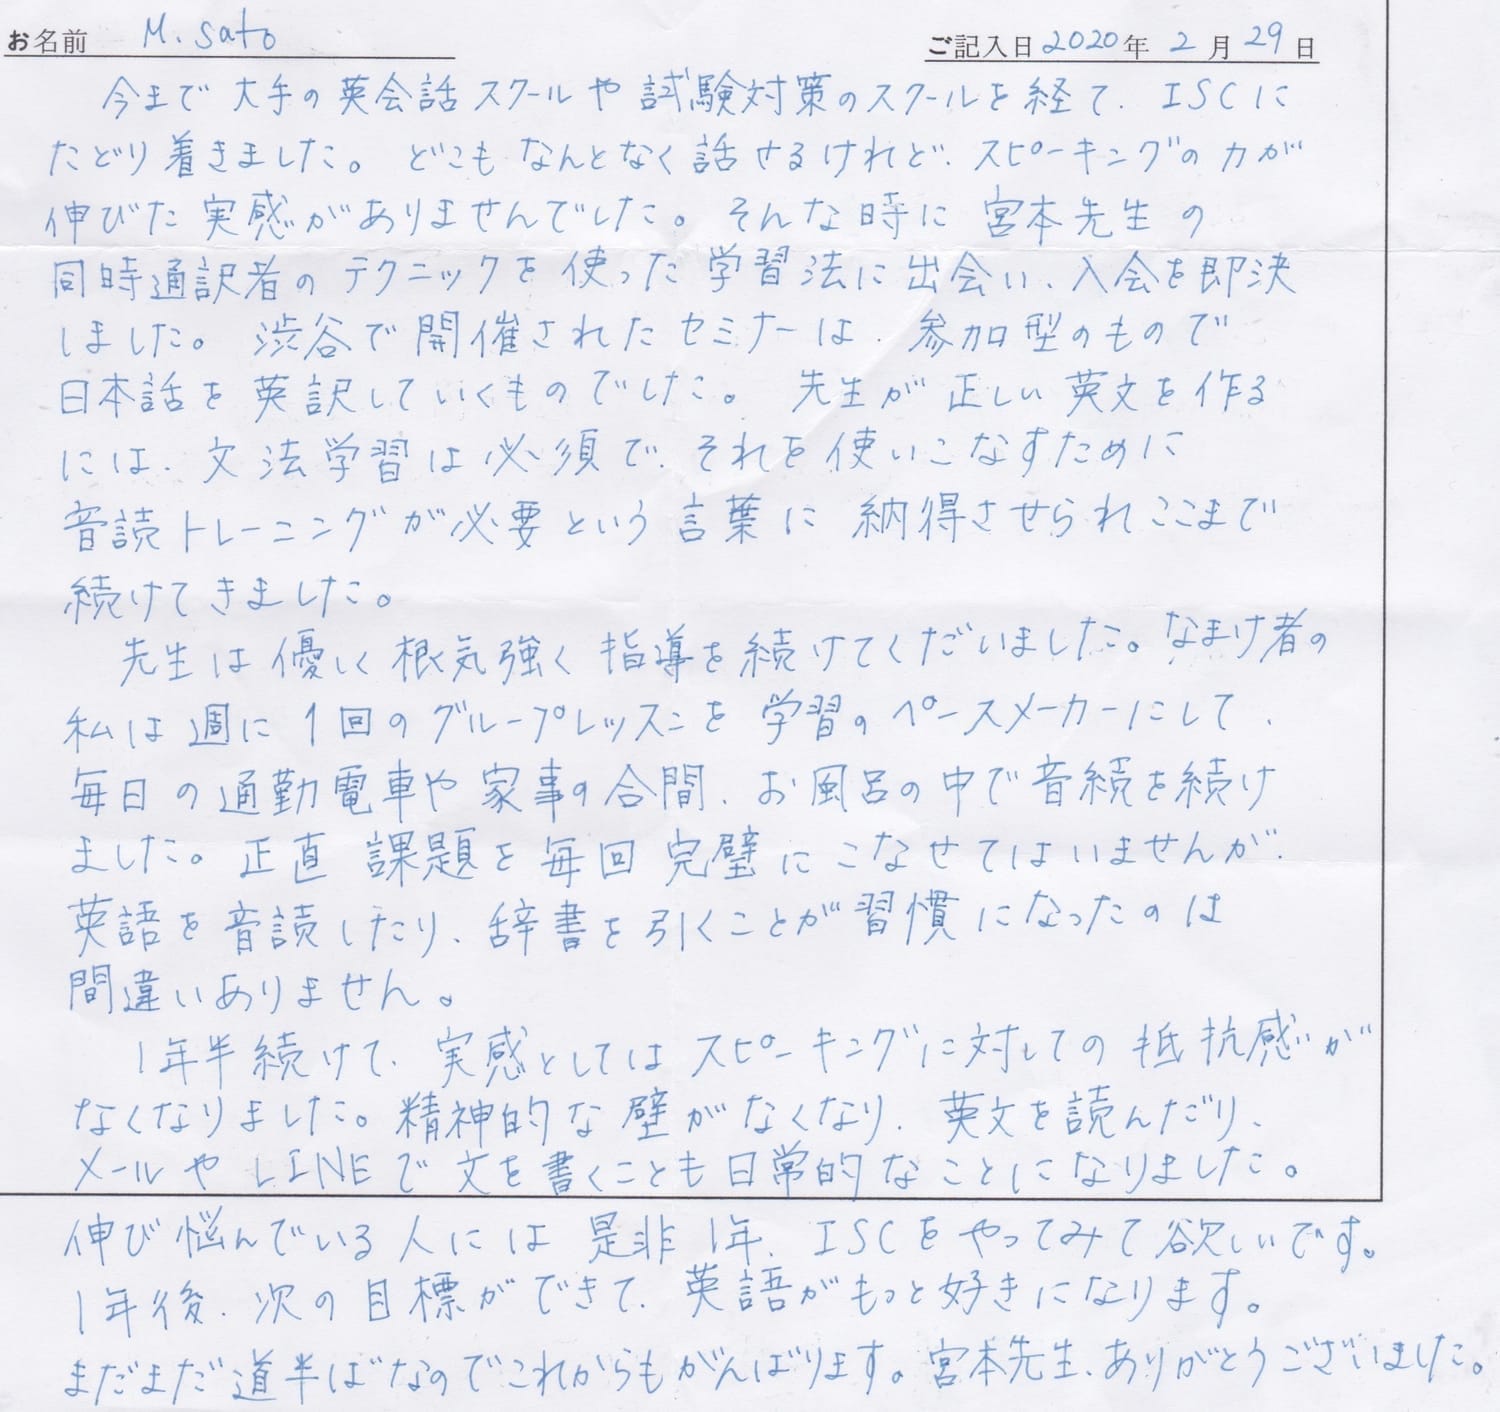 お名前 M. sato ご記入日 2020年 2月 29日
今まで 大手の英会話スクールや 試験対策のスクールを経て、ISCに
たどり着きました。どこも なんとなく話せるけれど、スピーキングの力が
伸びた 実感がありませんでした。そんな時に 宮本先生の
同時通訳者の テクニックを 使った 学習法に出会い、入会を即決
しました。渋谷で開催されたセミナーは、参加型のもので
日本話を 英訳していくものでした。先生が 正しい 英文を作る
には、文法学習は必須で、それを使いこなすために
音読トレーニングが必要という言葉に 納得させられここまで
続けてきました。
先生は優しく根気強く 指導を続けてくだいました。なまけ者の
私は週に1回のグループレッスンを 学習のペースメーカーにして、
毎日の通勤電車や 家事の合間、お風呂の中で音続を続け
ました。正直 課題を毎回 完璧にこなせてはいませんが、
英語を音読したり、辞書を引くことが習慣になったのは
間違いありません。
1年半続けて、実感としてはスピーキングに対しての 抵抗感が
なくなりました。精神的な壁がなくなり、英文を読んだり、
メールやLINEで文を書くことも日常的なことになりました。
伸び悩んでいる人には 是非1年、ISCをやってみて欲しいです。
1年後、次の目標ができて、英語がもっと好きになります。
まだまだ道半ばなのでこれからもがんばります。宮本先生、ありがとうございました。